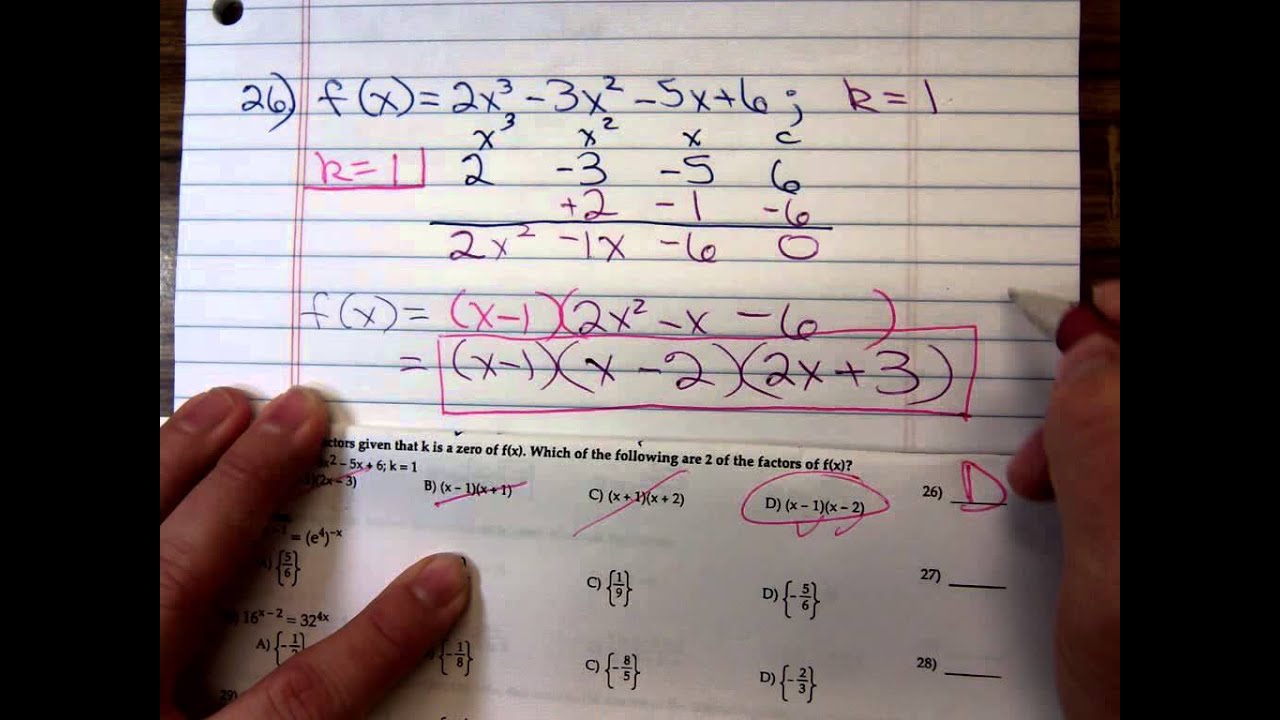 26) f(x) = 2x³ - 3x² - 5x + 6 ; k = 1
x³ x² x c
k = 1 2 -3 -5 6
+2 -1 -6
2x² -1x -6 0
f(x) = (x-1)(2x² - x - 6 )
= (x-1)(x - 2)(2x + 3)
ctors given that k is a zero of f(x). Which of the following are 2 of the factors of f(x)?
x² – 5x + 6; k = 1
)(2x – 3) B) (x – 1)(x + 1) C) (x + 1)(x + 2) D) (x – 1)(x – 2) 26) D
= (e⁴)⁻ˣ
{5/6} C) {1/9} D) {-5/6} 27)
16ˣ⁻² = 32⁴ˣ
A) {-1/ {-1/8} C) {-8/5} D) {-2/3} 28)
29)